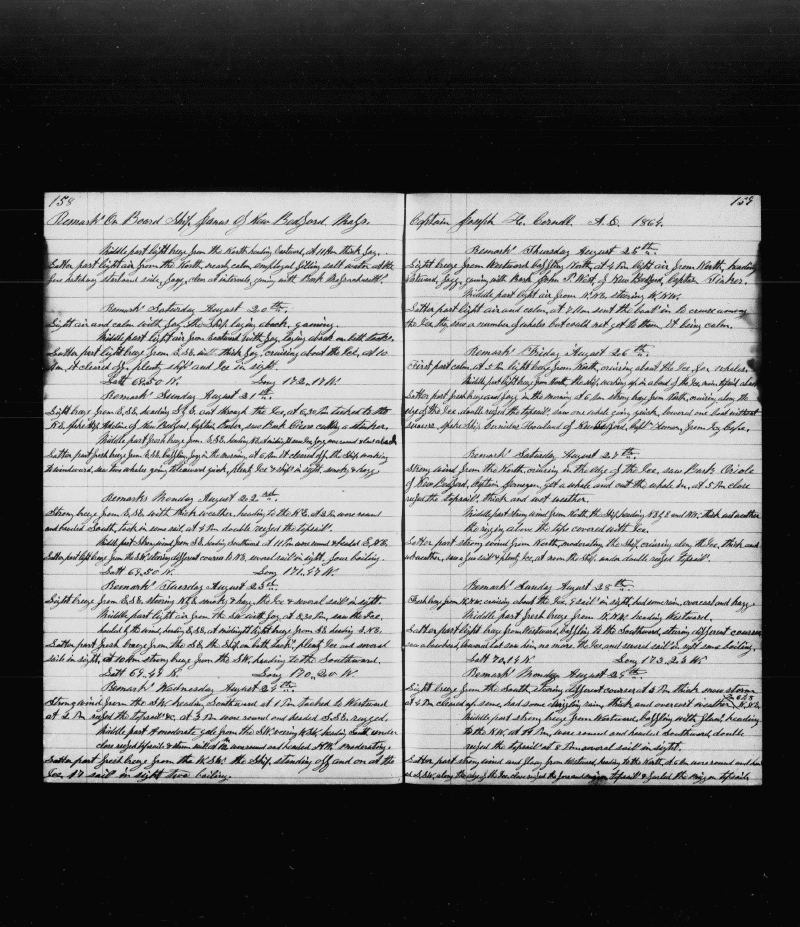 158
Remarks On Board Ship Janus Of New Bedford Mass.
Middle part light breeze from the North heading Eastward, at 11 Am thick fog.
Latter part light air from the North, nearly calm, employed filling salt water at the
fore hatchway starboard side, foggy, gaming with Bark
Remarks Saturday August 20th.
Light air and calm with fog the Ship laying aback. gaming.
Middle part light air from Eastward with fog, laying aback on both tacks.
Latter part light breeze from E.S.E. with thick fog, cruising about the Ice, at 10
Am it cleared off, plenty ships and Ice in sight.
Latt 69,50 N. Long 172,17 W.
Remarks Sunday August 21st.
Light breeze from E.S.E. heading out through the Ice, at 6,30 Pm tacked to the
N.E. spoke Ship of New Bedford, Captain saw Bark cutting a
Middle part fresh breeze from E.S.E. heading
Latter part fresh breeze from E.S.E. foggy in the morning, at 6 Am it cleared off the Ship working
to windward, saw two whales going to leeward quick, plenty Ice & ships in sight, smoky & hazy
Remarks Monday August 22nd.
Strong breeze from E.S.E. with thick weather, heading to the N.E. at 2 Pm wore round
and headed South, took in some sail, at 4 Pm double reefed the topsails.
Middle part Strong wind from S.E. heading Southward at 11 Pm wore round & headed
Latter part light breeze from the S.W. steering different courses to N.E. several sail in sight, four boiling.
Latt 69,50 N. Long 171,47 W.
Remarks Tuesday August 23d.
Light breeze from E.S.E. steering N.E. smoky & hazy, the Ice & several sail in sight.
Middle part light air from the S.W. with fog, at 8,30 Pm, saw the Ice,
headed by the wind, heading E.S.E. at midnight light breeze from S.E. heading E.N.E.
Latter part fresh breeze from the S.E. the Ship on both tacks, plenty Ice and several
sails in sight, at 10 Am strong breeze from the S.W. heading to the Southward.
Latt 69,44 N. Long 170,20 W.
Remarks Wednesday August 24th.
Strong wind from the S.W. heading Southward at 1 Pm tacked to Westward
at 2 Pm reefed the topsails &c, at 3 Pm wore round and headed S.S.E. rugged.
Middle part moderate gale from the S.W. veering to W.S.W. heading South under
close reefed topsails & storm sails at Pm wore round and headed N.W. moderating.
Latter part fresh breeze from the W.S.W. the Ship standing off and on at the
Ice 17 sail in sight two boiling.
159
Captain Joseph H. Cornell. A.D. 1864.
Remarks Thursday August 25th.
Light breeze from Westward baffling North, at 4 Pm light air from North, heading
Eastward, foggy, gaming with Bark John P. West of New Bedford, Captain Tinker.
Middle part light air from N.N.E. steering W.N.W.
Latter part light air and calm, at 7 Am sent the boats in to cruise among
the Ice, they saw a number of whales but could not get to them it being calm.
Remarks Friday August 26th.
First part calm, at 5 Pm light breeze from North, cruising about the Ice for whales.
Middle part light breeze from North, the Ship working up in a bend of the Ice, main topsail aback
Latter part fresh breeze and foggy in the morning at 6 Am strong breeze from North, cruising along the
edge of the Ice, double reefed the topsails, saw one whale going quick, lowered one boat without
success, spoke Ship Cornelius Howland of New Bedford, Capt Homan, from Icy Cape.
Remarks Saturday August 27th.
Strong wind from the North, cruising in the edge of the Ice, saw Bark Oriole
of New Bedford, Captain Jernegan, get a whale and cut the whale in, at 5 Pm close
reefed the topsails, thick and wet weather.
Middle part strong wind from North the Ship heading thick wet weather
the rigging along the tops covered with Ice.
Latter part strong wind from North, moderating the Ship, cruising along the Ice, thick and
wet weather, saw a few sail & plenty Ice, at noon the Ship under double reefed topsails.
Remarks Sunday August 28th.
Fresh breeze from N.N.W. cruising about the Ice, 9 sail in sight, had some rain, overcast and hazy.
Middle part fresh breeze from N.N.W. heading Westward.
Latter part light breeze from Westward, baffling to the Southward, steering different courses,
saw a bowhead, lowered but saw him no more, the Ice and several sail in sight some boiling.
Latt 70,14 N Long 173,23 W.
Remarks Monday August 29th.
Light breeze from the South, steering different courses at 2 Pm thick snow storm
at 4 Pm cleared off some, had some drizzling rain, thick and overcast weather
Middle part strong breeze from Westward, baffling with flaws, heading
to the N.W. at 7 Pm wore round and headed Southward, double
reefed the topsails at 8 Pm several sail in sight.
Latter part strong wind and flaws from Westward, heading to the North, at 6 Am wore round and headed
S.S.W. along the edge of the Ice, close reefed the fore and mizzen topsails & furled the mizzen topsail.